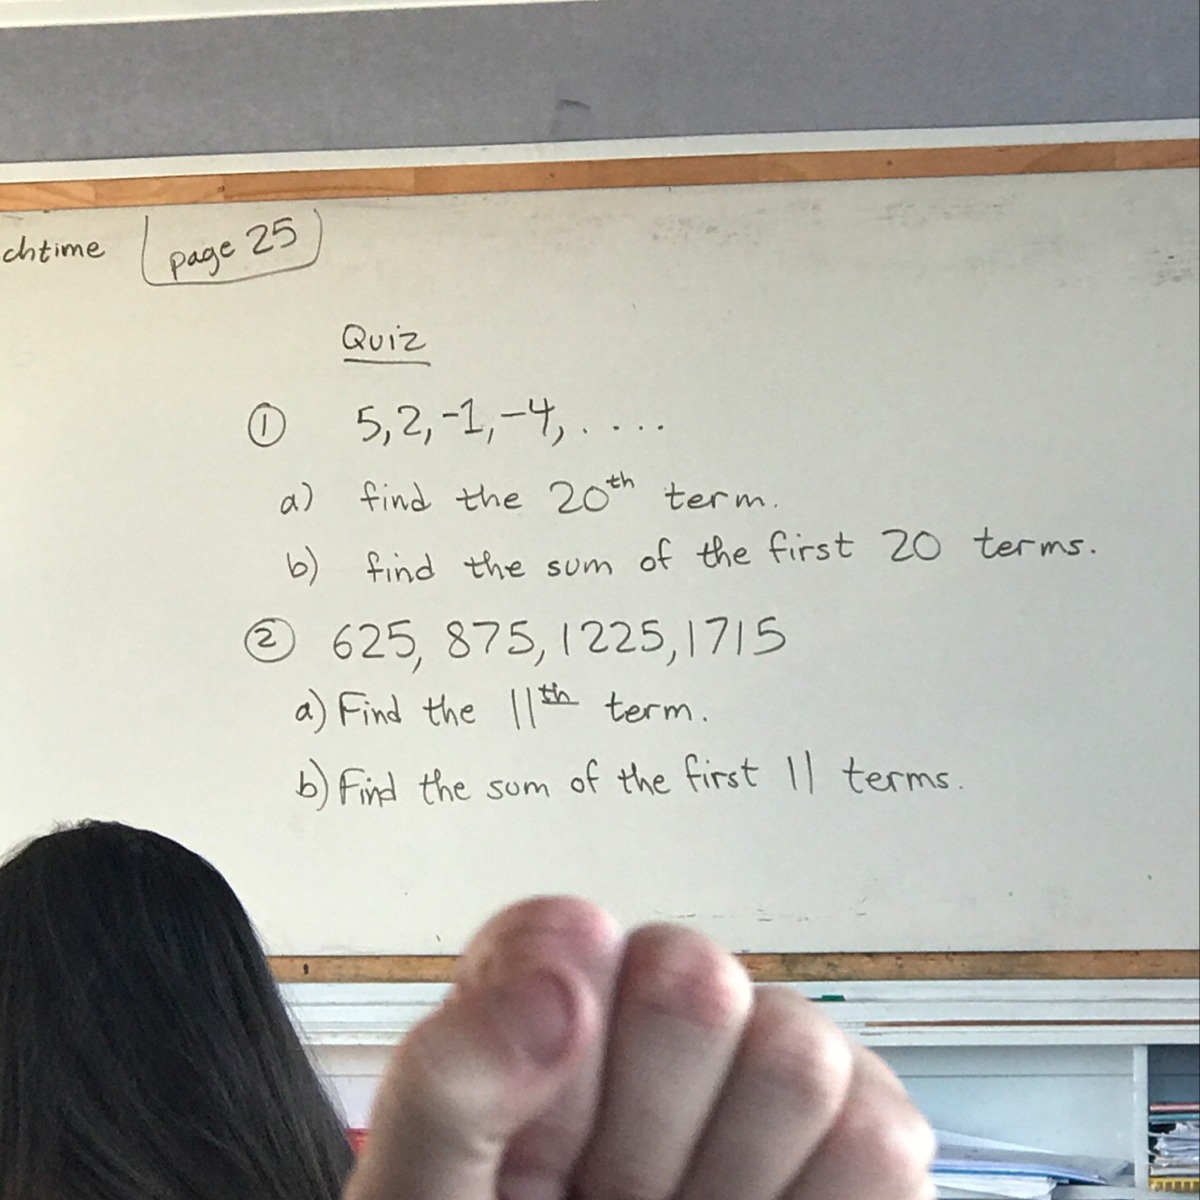 chtime page 25
Quiz
① 5, 2, -1, -4, . . . .
a) find the 20th term.
b) find the sum of the first 20 terms.
② 625, 875, 1225, 1715
a) Find the 11th term.
b) Find the sum of the first 11 terms.